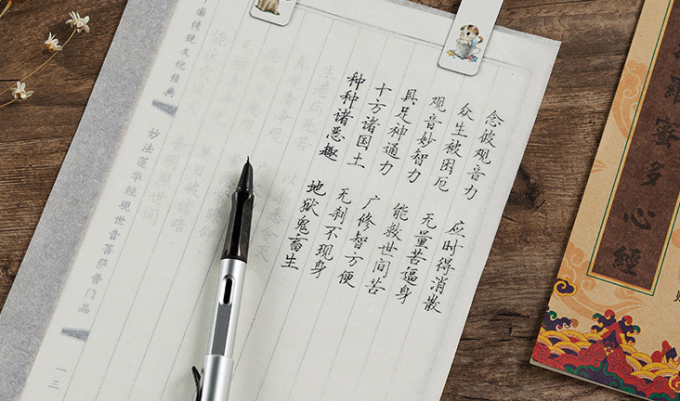 念彼观音力 应时得消散
众生被困厄 无量苦逼身
观音妙智力 能救世间苦
具足神通力 广修智方便
十方诸国土 无刹不现身
种种诸恶趣 地狱鬼畜生
国传统文化经典
妙法莲华经观世音菩萨普门品
一三
蜜多心經